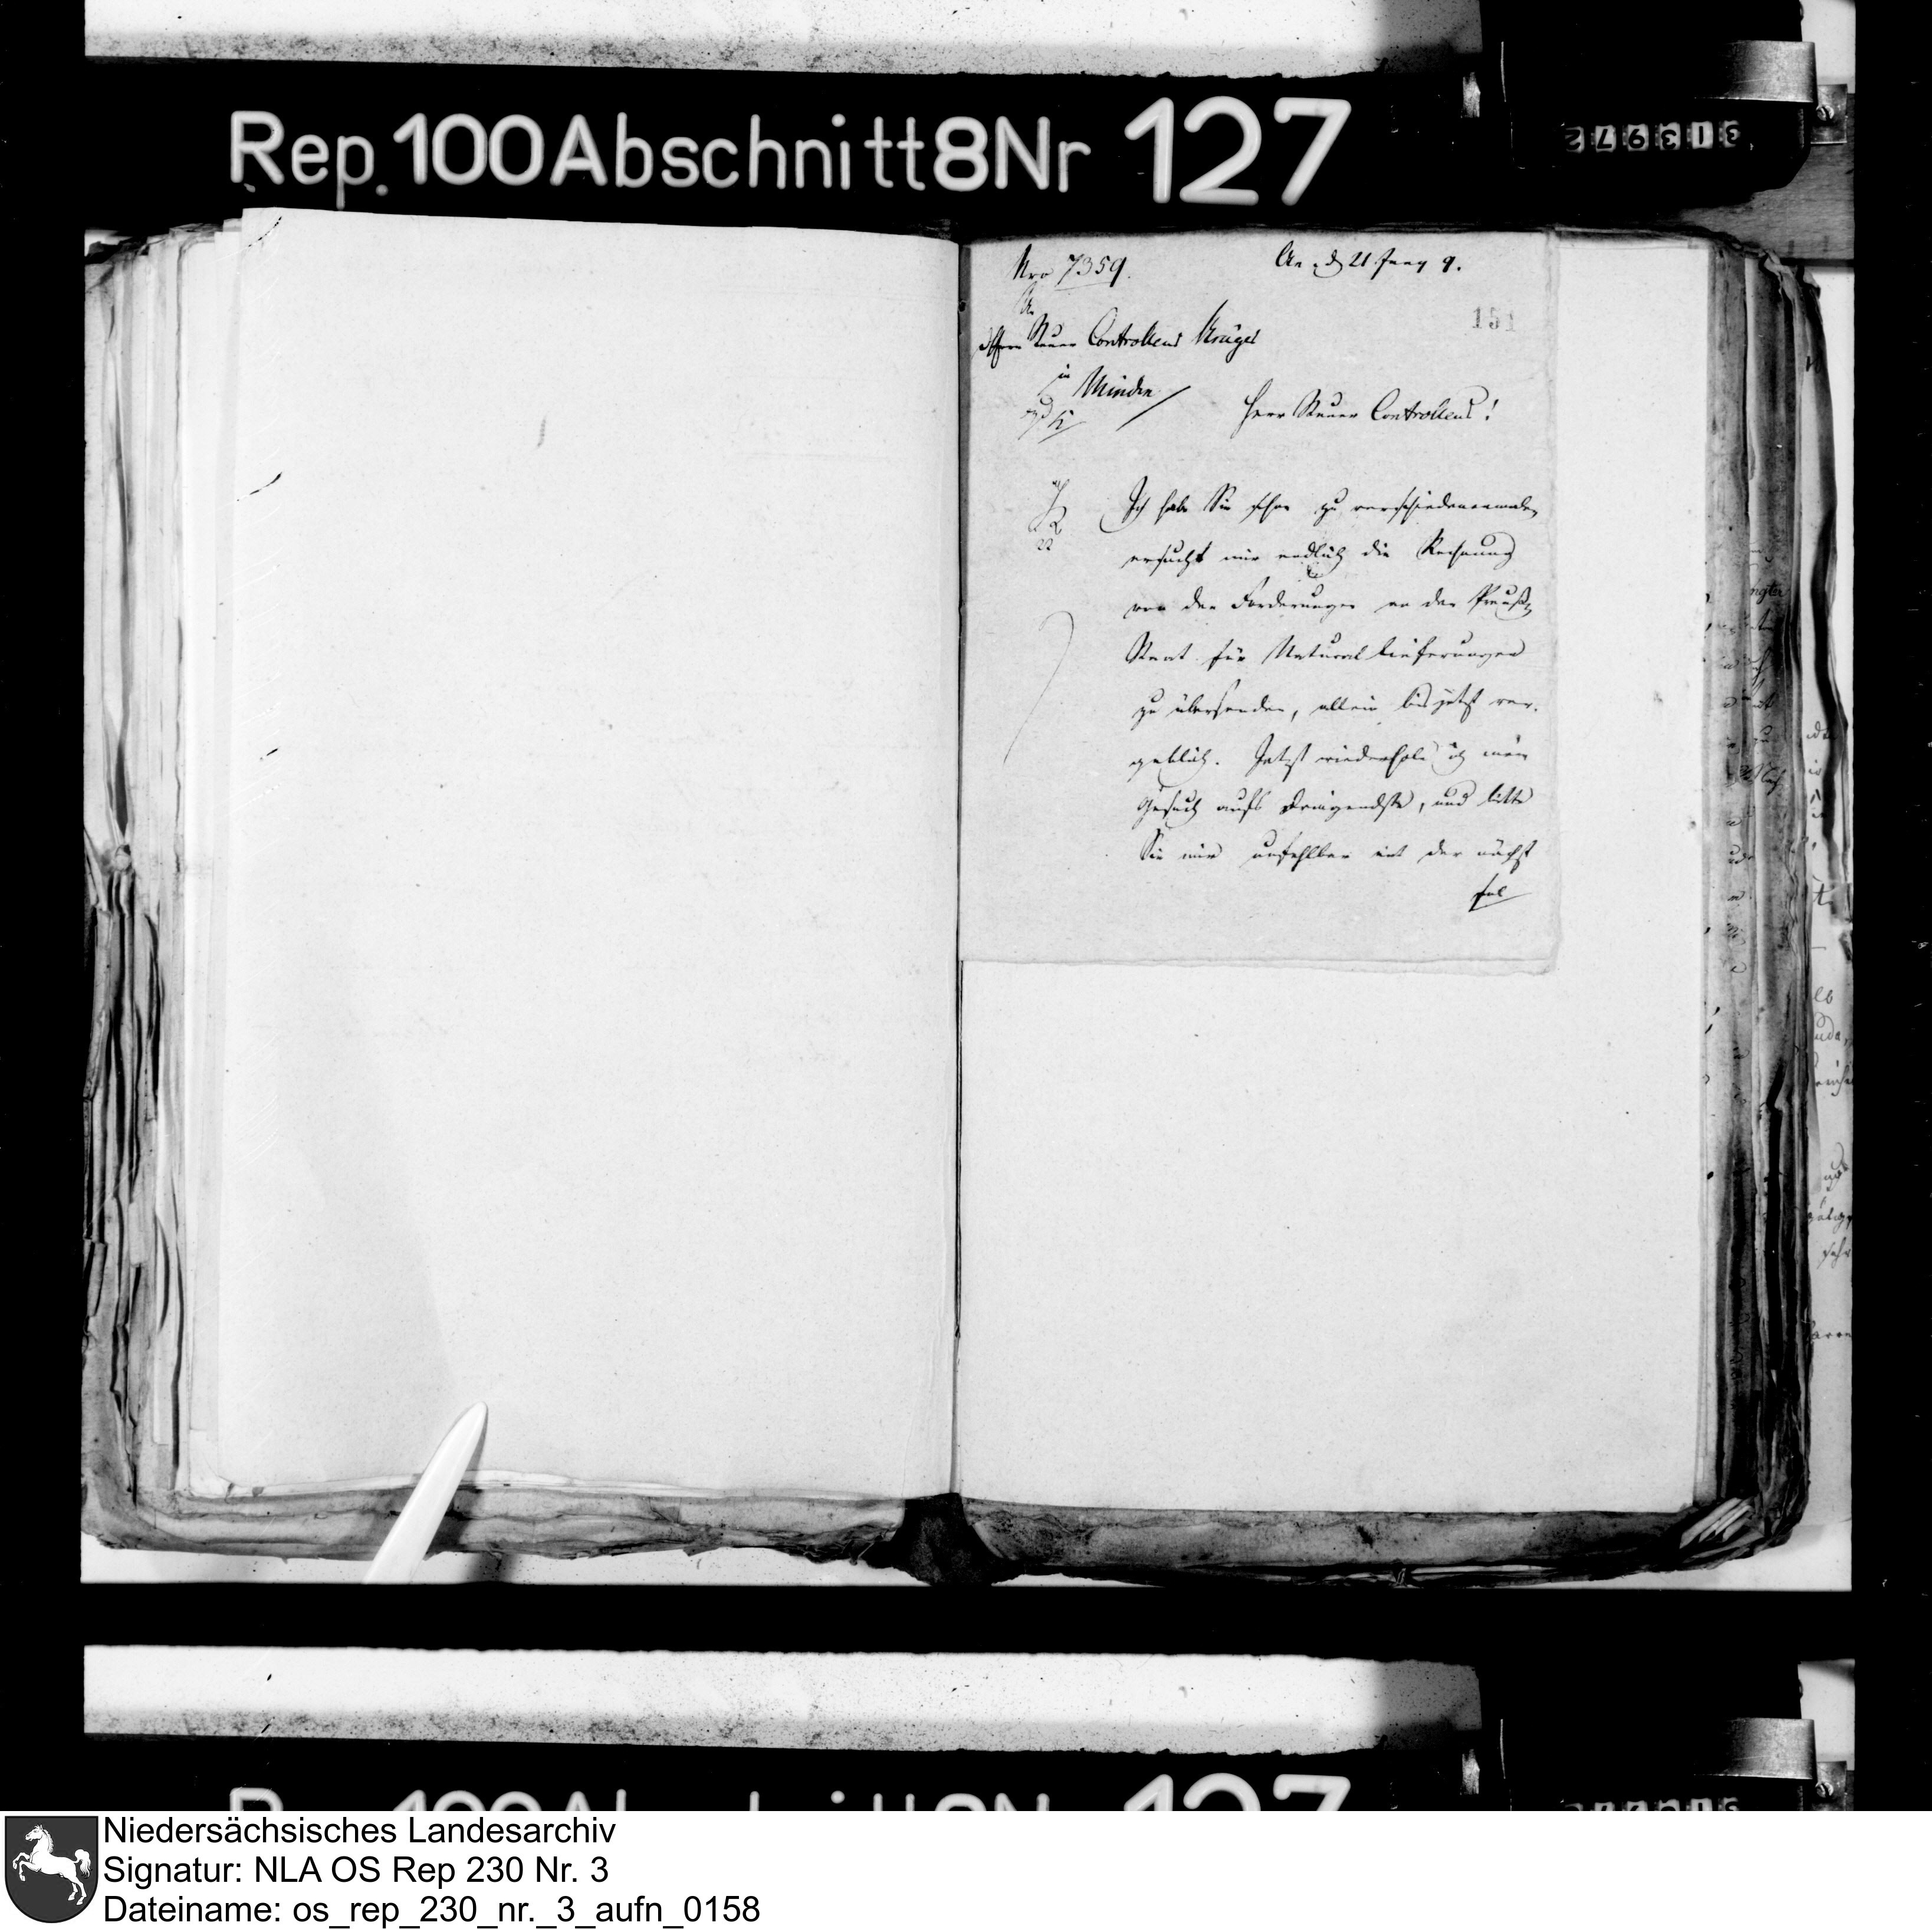 Rep. 100 Abschnitt 8 Nr 127
Nro 7359.
d 21 Juny 9.
151
An
Herrn Steuer Controlleur Krüger
in Minden
Herr Steuer Controlleur!
Ich habe Sie schon zu verschiedenenmalen
ersucht mir endlich die Rechnung
von den Forderungen an den Preuß.
Staat für Natural Lieferungen
zu übersenden, allein bis jetzt ver-
geblich. Jetzt wiederhole ich mein
Gesuch aufs dringendste, und bitte
Sie mir unfehlbar mit der nächst
fol
Niedersächsisches Landesarchiv
Signatur: NLA OS Rep 230 Nr. 3
Dateiname: os_rep_230_nr._3_aufn_0158